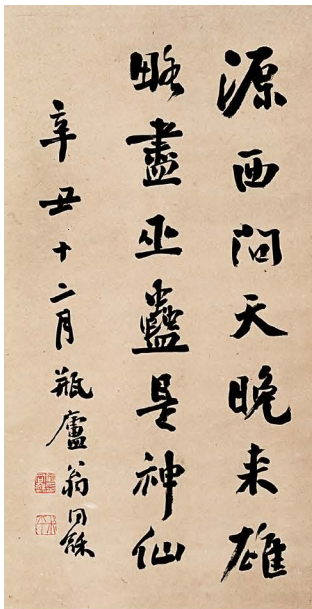 源西问天晚来雄
略盡巫蠱是神仙
辛丑十二月瓶廬翁同龢